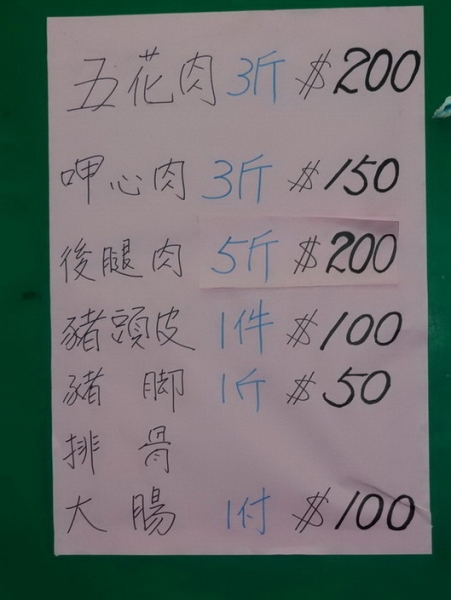 五花肉 3斤 $200
呷心肉 3斤 $150
後腿肉 5斤 $200
豬頭皮 1件 $100
豬腳 1斤 $50
排骨
大腸 1付 $100